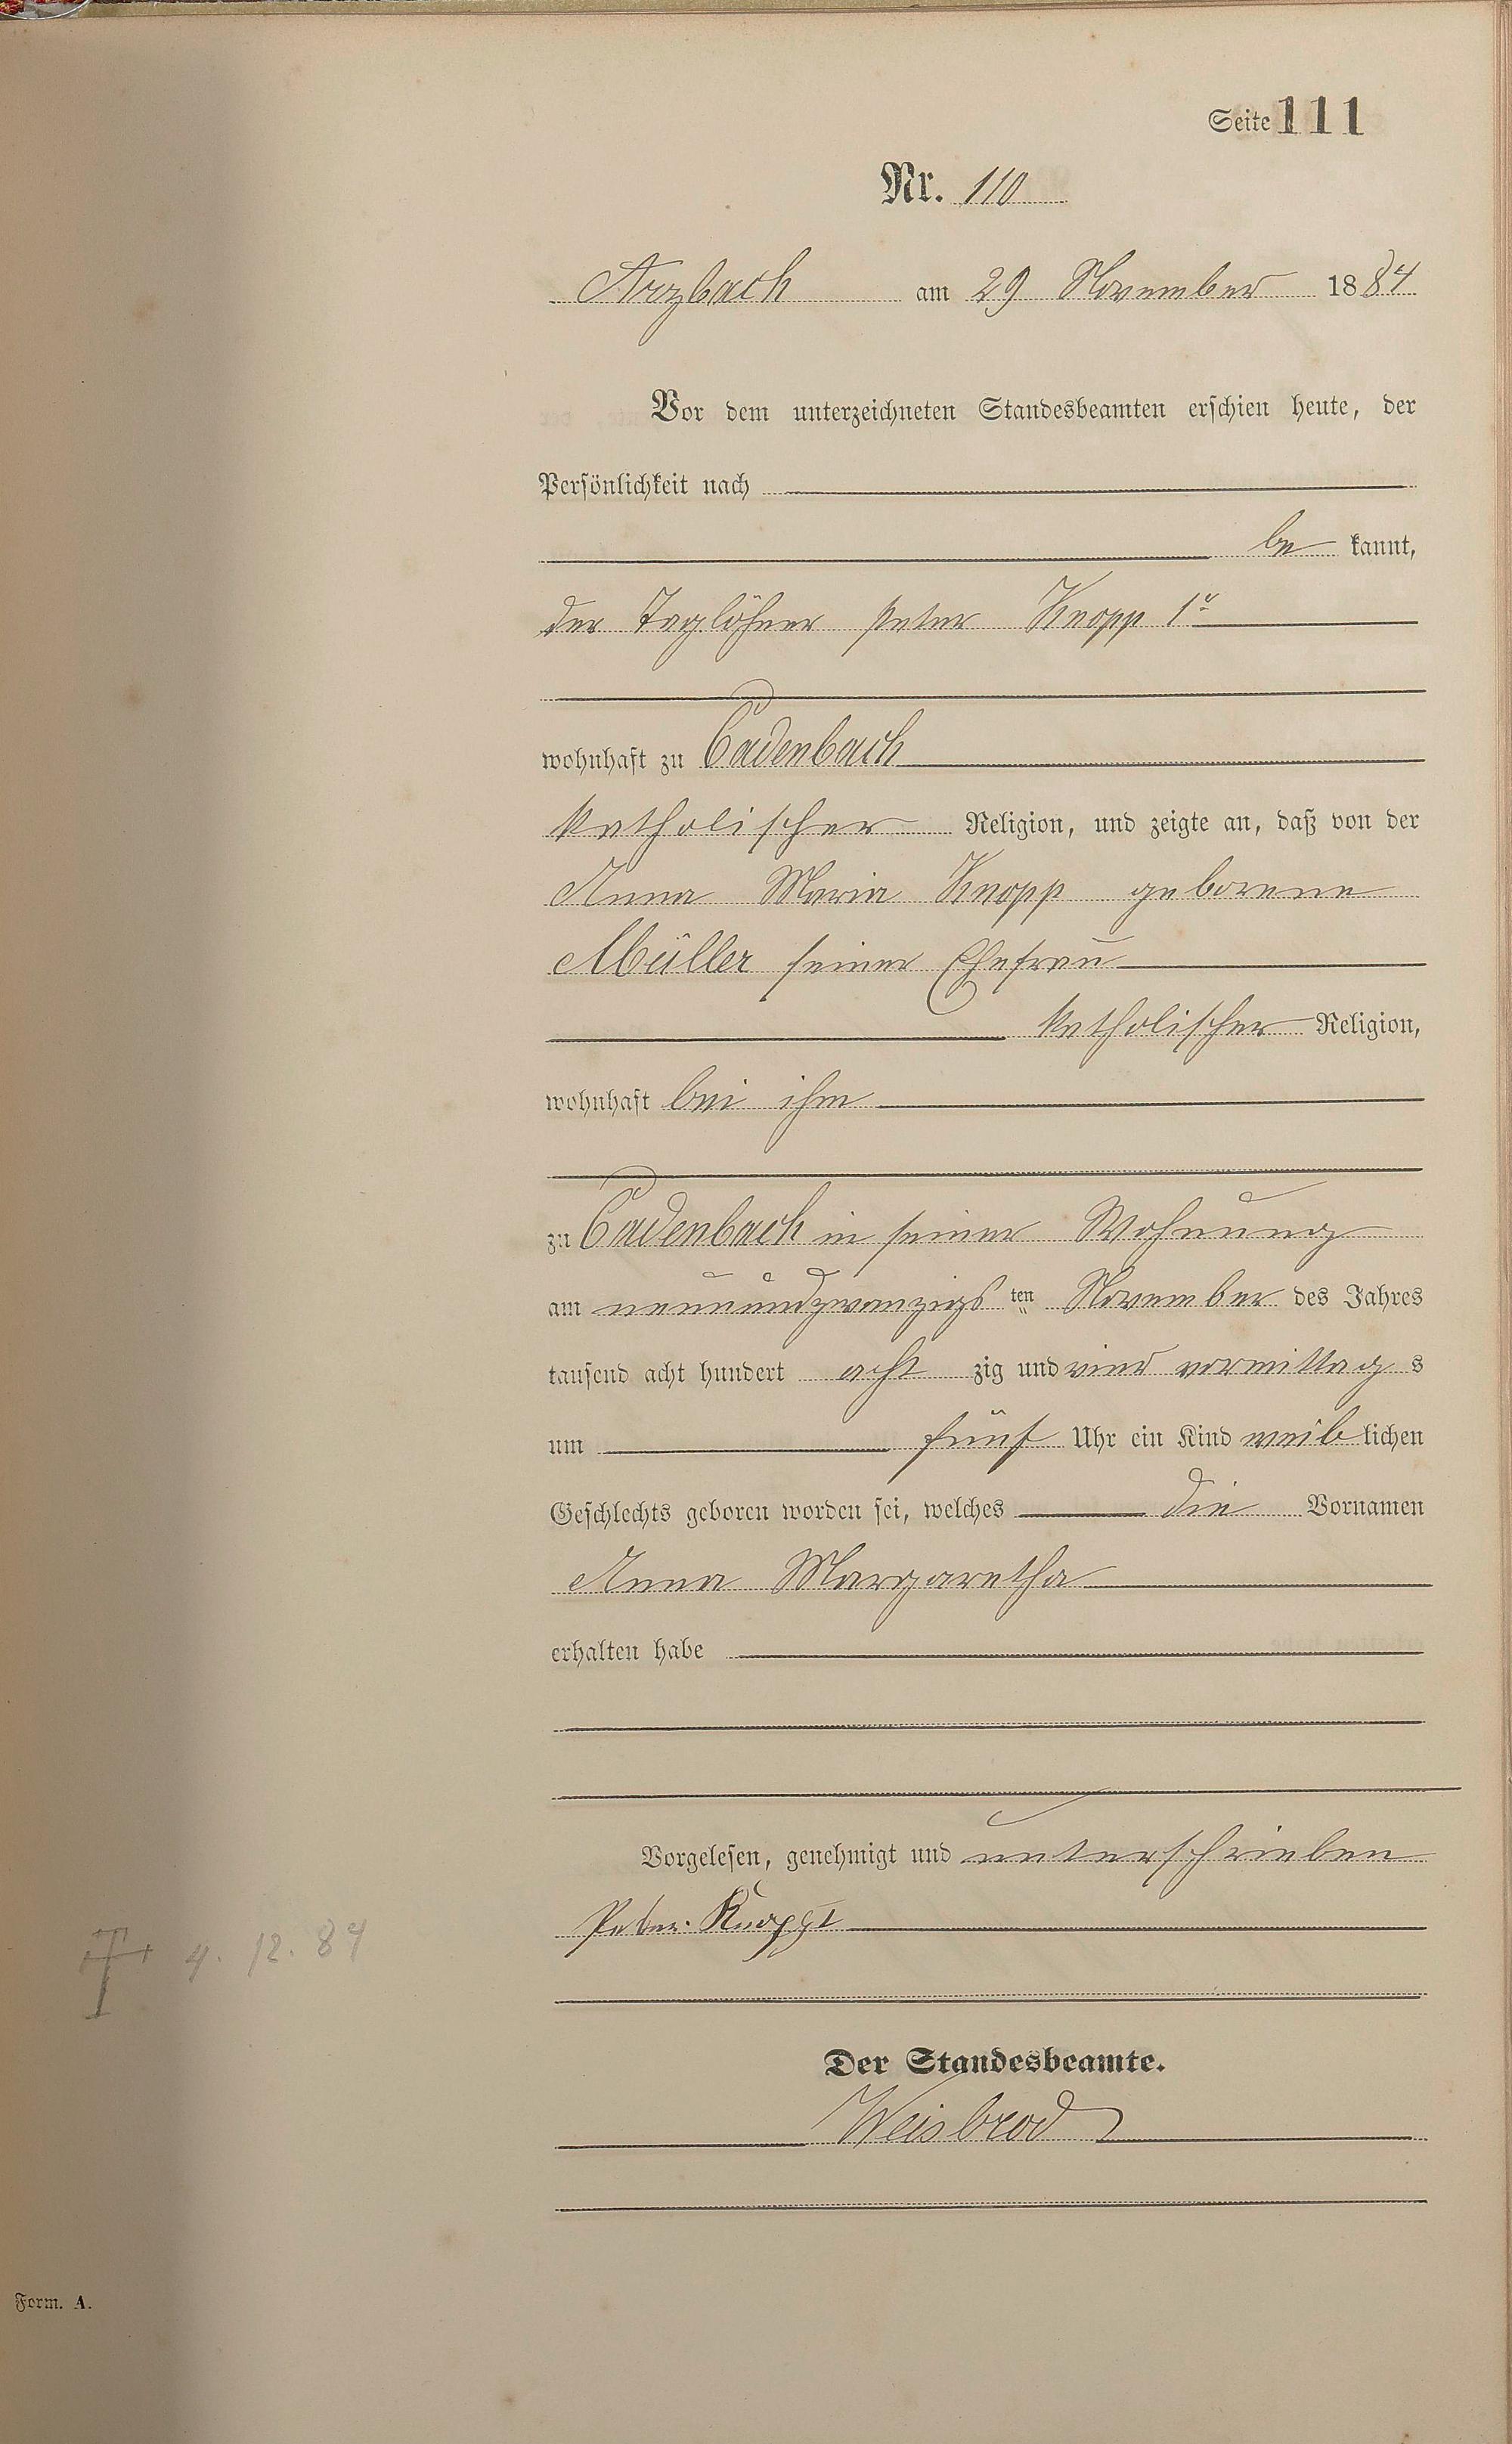 Seite 111
Nr. 110
Arzbach am 29 November 1884
Vor dem unterzeichneten Standesbeamten erschien heute, der
Persönlichkeit nach
be kannt,
der Taglöhner Peter Knopp 1r
wohnhaft zu Cadenbach
katholischer Religion, und zeigte an, daß von der
Anna Maria Knopp geborene
Müller seiner Ehefrau
katholischer Religion,
wohnhaft bei ihm
zu Cadenbach in seiner Wohnung
am neunundzwanzigs ten November des Jahres
tausend acht hundert acht zig und vier vormittag s
um fünf Uhr ein Kind weib lichen
Geschlechts geboren worden sei, welches die Vornamen
Anna Margaretha
erhalten habe
Vorgelesen, genehmigt und unterschrieben
Peter Knopp
† 4. 12. 84
Der Standesbeamte.
Weisbrod
Form. A.